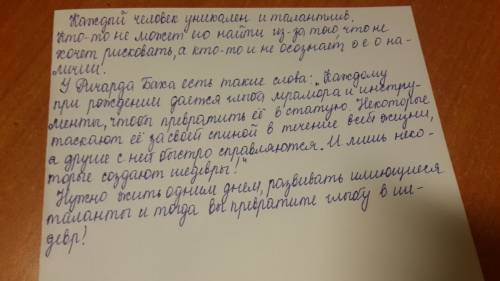 Каждый человек уникален и талантлив.
Кто-то не может его найти из-за того, что не
хочет рисковать, а кто-то и не осознаёт о его на-
личии.
У Ричарда Баха есть такие слова: "Каждому
при рождении даётся глыба мрамора и инстру-
менты, чтоб превратить её в статую. Некоторые
таскают её за своей спиной в течение всей жизни,
а другие с ней быстро справляются. И лишь неко-
торые создают шедевры!"
Нужно жить одним днём, развивать имеющиеся
таланты и тогда вы превратите глыбу в ше-
девр!